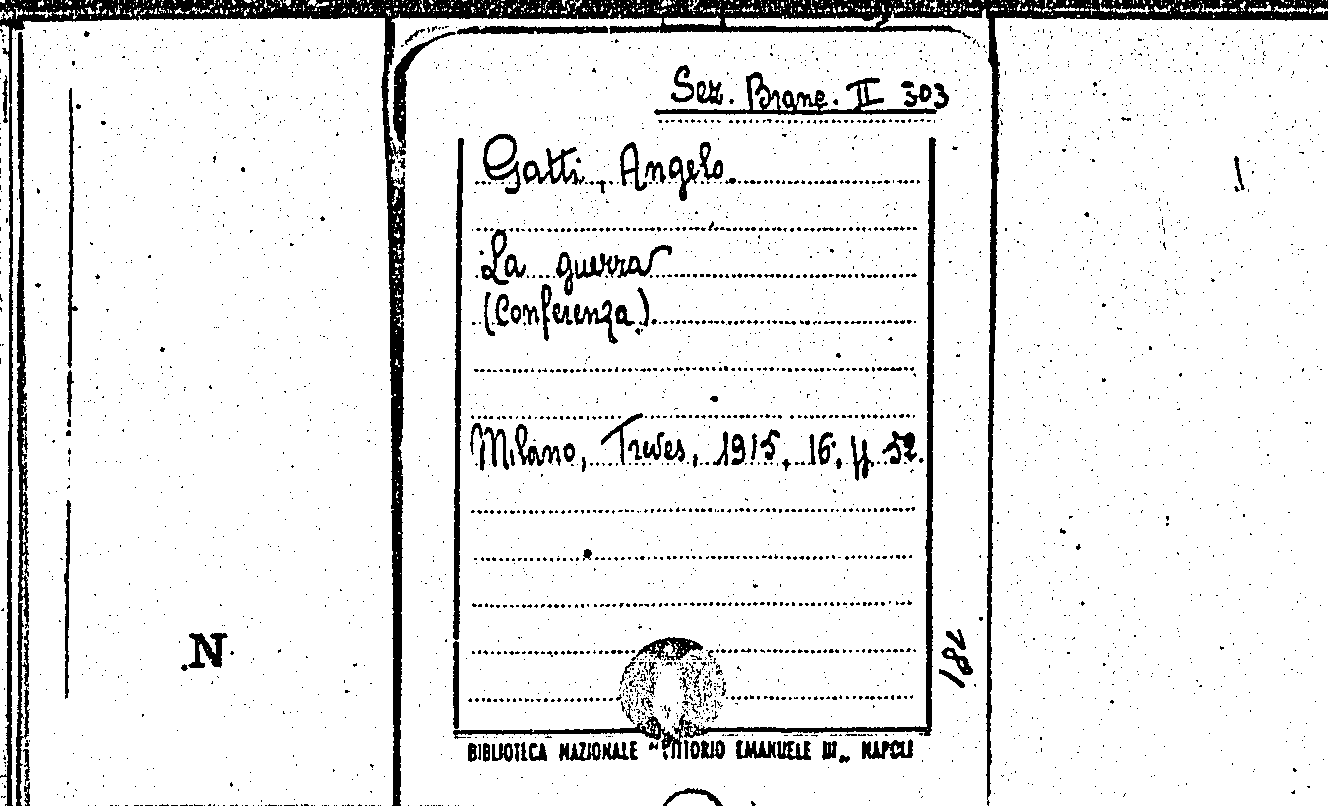 Sez. Branc. II 303
Gatti, Angelo.
La guerra
(Conferenza).
Milano, Treves, 1915, 16°, pp 52.
N
BIBLIOTECA NAZIONALE "VITTORIO EMANUELE III„ NAPOLI